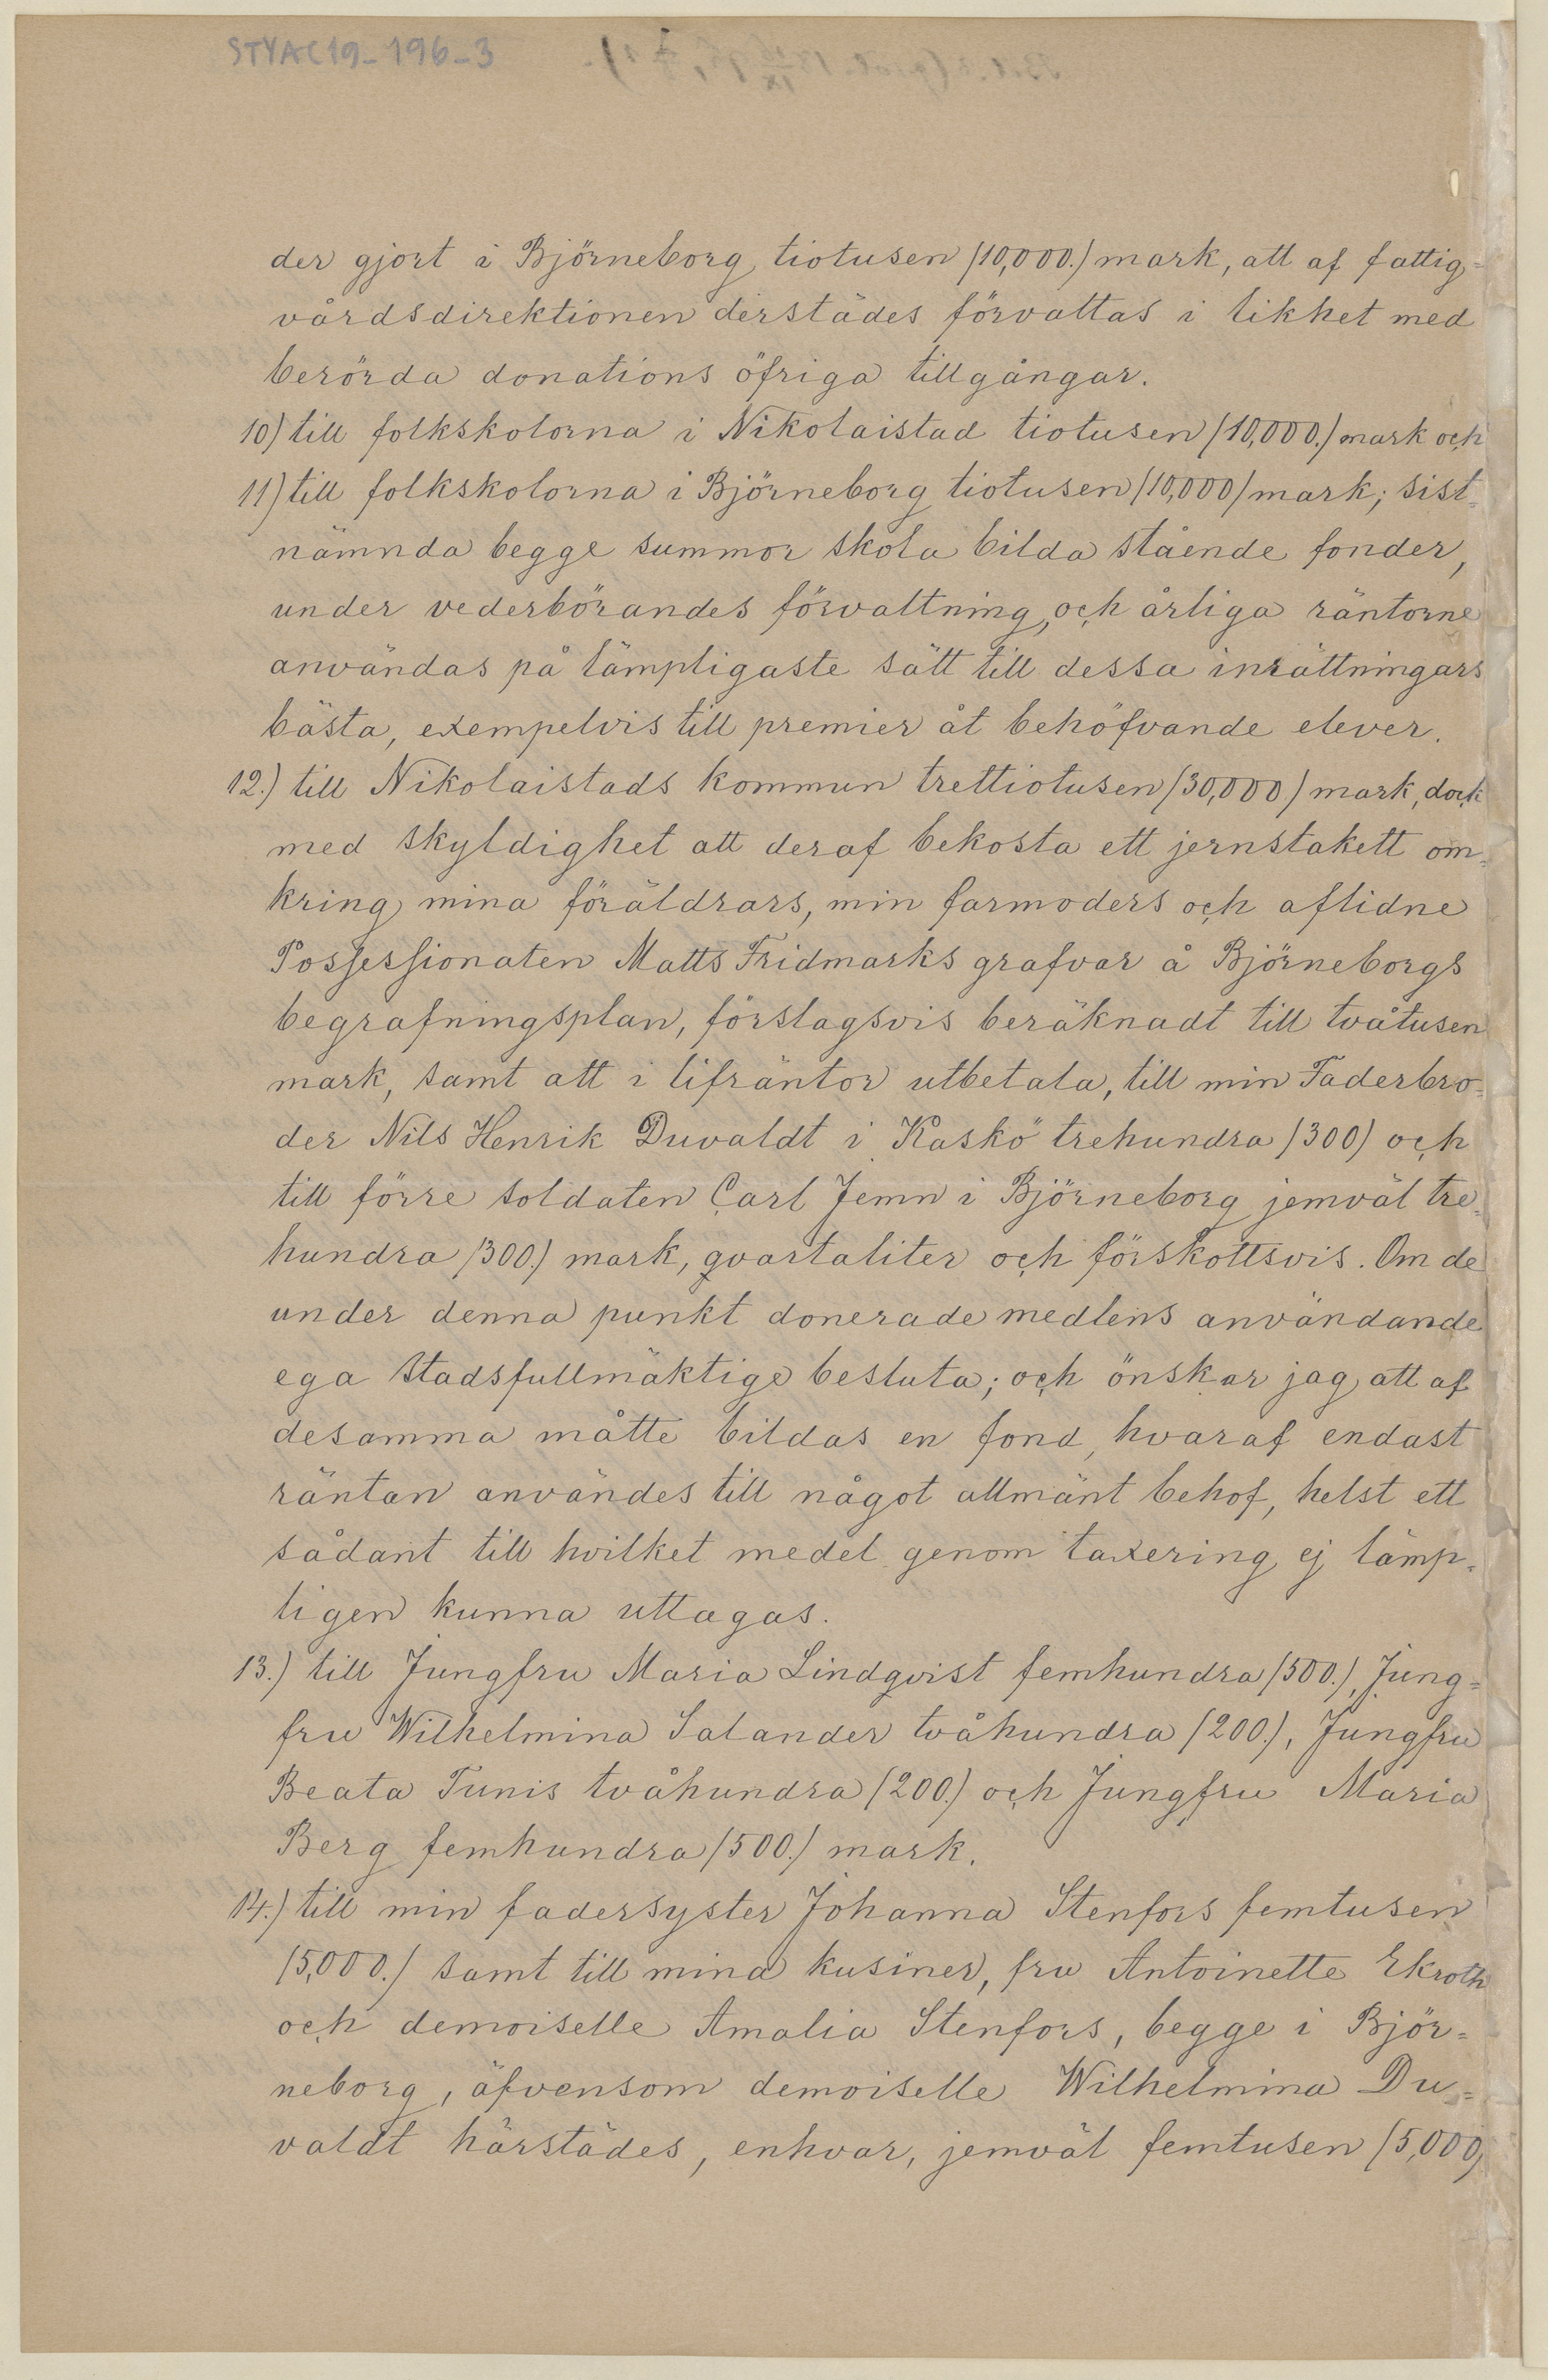 STYAC19_196_3
der gjort i Björneborg tiotusen (10,000.) mark, att af fattig=
vårdsdirektionen derstädes förvaltas i likhet med
berörda donations öfriga tillgångar.
10) till folkskolorna i Nikolaistad tiotusen (10,000.) mark och
11) till folkskolorna i Björneborg tiotusen (10,000) mark; sist=
nämnda begge summor skola bilda stående fonder,
under vederbörandes förvaltning, och årliga räntorne
användas på lämpligaste sätt till dessa inrättningars
bästa, exempelvis till premier åt behöfvande elever.
12.) till Nikolaistads kommun trettiotusen (30,000) mark, dock
med skyldighet att deraf bekosta ett jernstakett om=
kring mina föräldrars, min farmoders och aflidne
Possessionaten Matts Fridmarks grafvar å Björneborgs
begrafningsplan, förslagsvis beräknadt till tvåtusen
mark, samt att i lifräntor utbetala, till min Faderbro=
der Nils Henrik Duvaldt i Kaskö trehundra (300) och
till förre soldaten Carl Jemn i Björneborg jemväl tre=
hundra (300.) mark, qvartaliter och förskottsvis. Om de
under denna punkt donerade medlens användande
ega Stadsfullmäktige besluta; och önskar jag att af
desamma måtte bildas en fond, hvaraf endast
räntan användes till något allmänt behof, helst ett
sådant till hvilket medel genom taxering ej lämp=
ligen kunna uttagas.
13.) till Jungfru Maria Lindqvist femhundra (500.), Jung=
fru Wilhelmina Salander tvåhundra (200.), Jungfru
Beata Tunis tvåhundra (200.) och Jungfru Maria
Berg femhundra (500.) mark.
14.) till min fadersyster Johanna Stenfors femtusen
(5,000.) samt till mina kusiner, fru Antoinette Ekroth
och demoiselle Amalia Stenfors, begge i Björ=
neborg, äfvensom demoiselle Wilhelmina Du=
valdt härstädes, enhvar, jemväl femtusen (5,000)